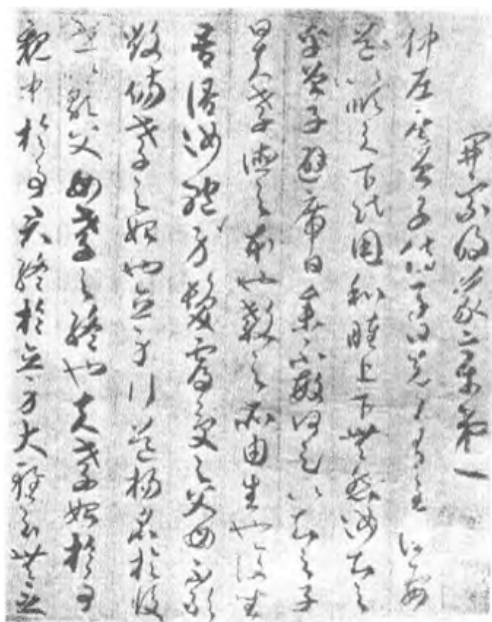 開宗明義章第一
仲尼居曾子侍子曰先王有至德要
道以順天下民用和睦上下無怨汝知之
乎曾子避席曰參不敏何足以知之子
曰夫孝德之本也教之所由生也復坐
吾語汝體身髮膚受之父母不敢
毀傷孝之始也立身行道揚名於後
世以顯父母孝之終也夫孝始於事
親中於事君終於立身大雅云無念